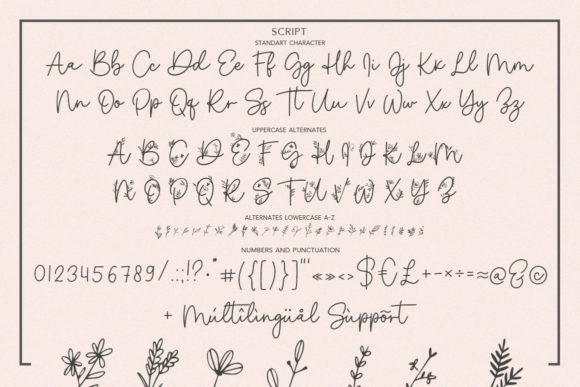 SCRIPT
STANDART CHARACTER
Aa Bb Cc Dd Ee Ff Gg Hh Ii Jj Kk Ll Mm
Nn Oo Pp Qq Rr Ss Tt Uu Vv Ww Xx Yy Zz
UPPERCASE ALTERNATES
A B C D E F G H I J K L M
N O P Q R S T U V W X Y Z
ALTERNATES LOWERCASE A-Z
NUMBERS AND PUNCTUATION
0123456789/.:;!?·"#({[)}]'"«»<>$€£+-×÷=≈@&©
+ Multilingüål Süppõrt